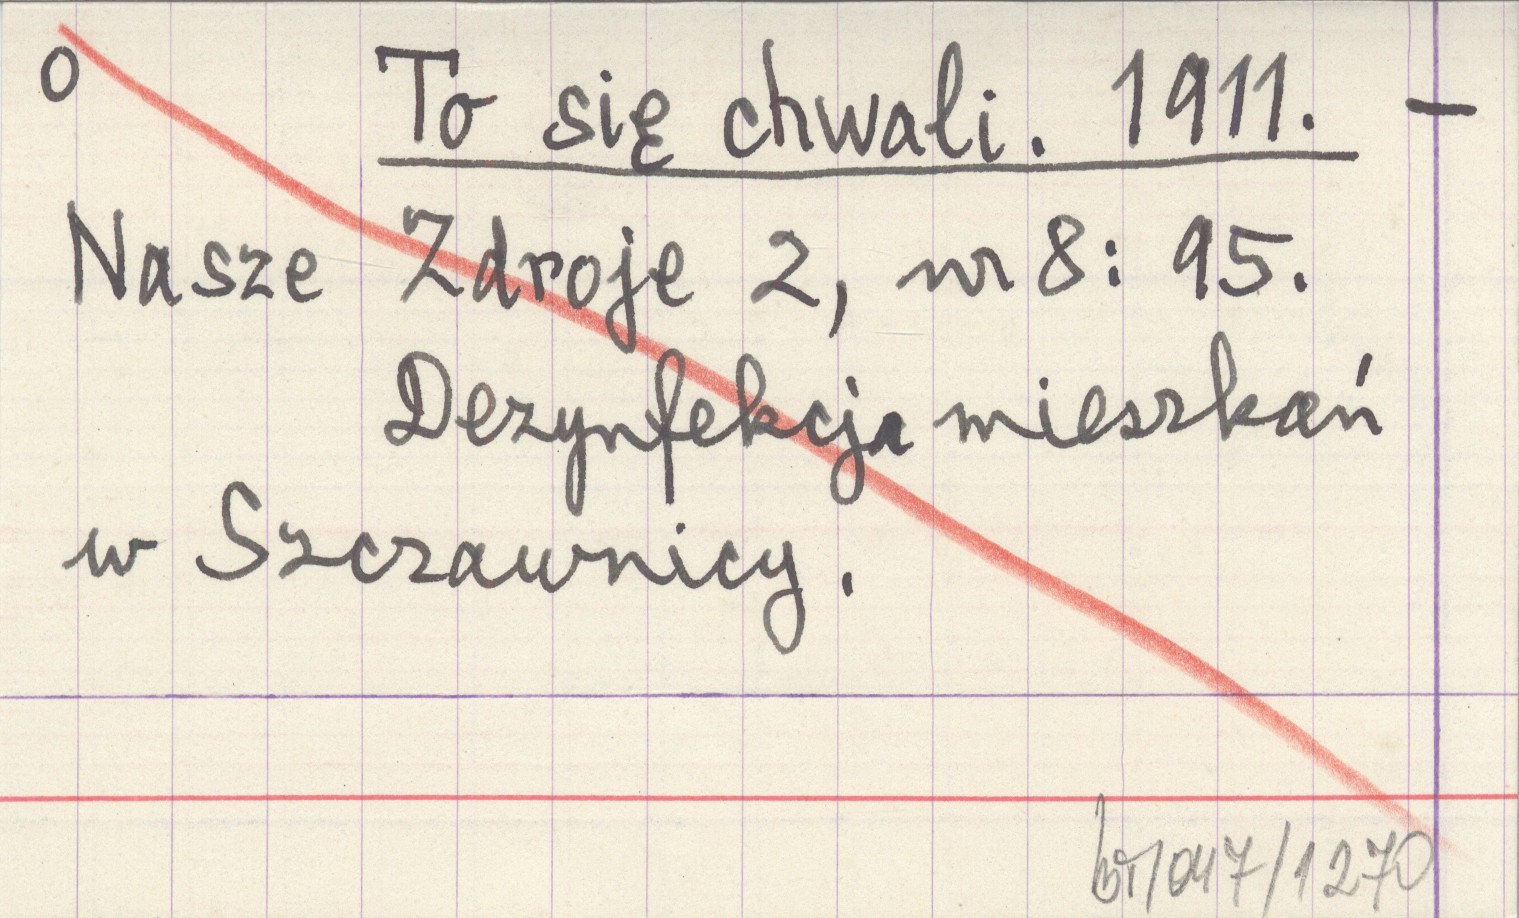 o To się chwali. 1911. –
Nasze Zdroje 2, nr 8: 95.
Dezynfekcja mieszkań
w Szczawnicy.
/047/1270